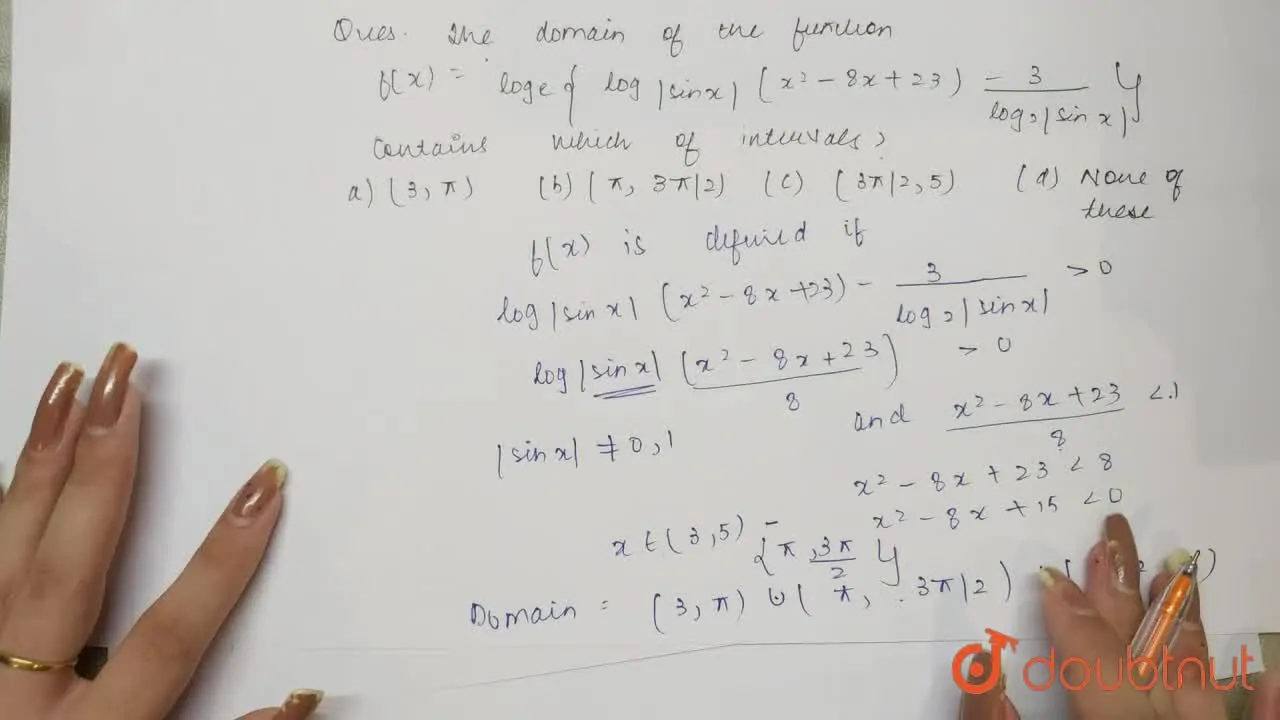 Ques. The domain of the function
f(x) = loge { log |sinx| (x² - 8x + 23) - 3 / log₂|sin x| }
contains which of intervals,
a) (3, π) (b) (π, 3π/2) (c) (3π/2, 5) (d) None of these
f(x) is defined if
log |sin x| (x² - 8x + 23) - 3 / log₂|sin x| > 0
log |sin x| (x² - 8x + 23 / 8) > 0
|sin x| ≠ 0, 1 and x² - 8x + 23 / 8 < 1
x² - 8x + 23 < 8
x² - 8x + 15 < 0
x ∈ (3, 5) - {π, 3π/2}
Domain = (3, π) ∪ (π, 3π/2)
doubtnut